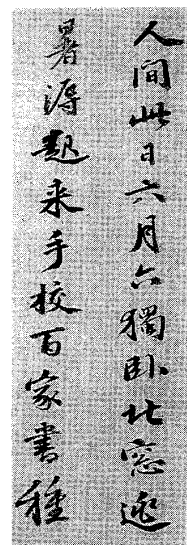 人間此日六月六獨卧北窓逃
暑溽起来手校百家書種